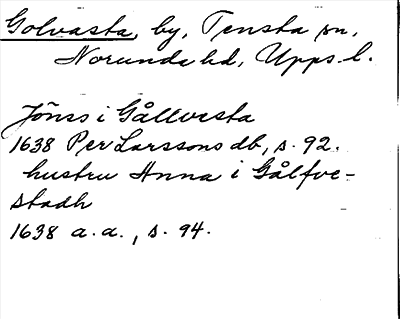 Golvasta, by, Tensta sn,
Norunda hd, Upps. l.
Jönss i Gållvesta
1638 Per Larssons db, s. 92.
hustru Anna i Gålfve-
stadh
1638 a. a., s. 94.